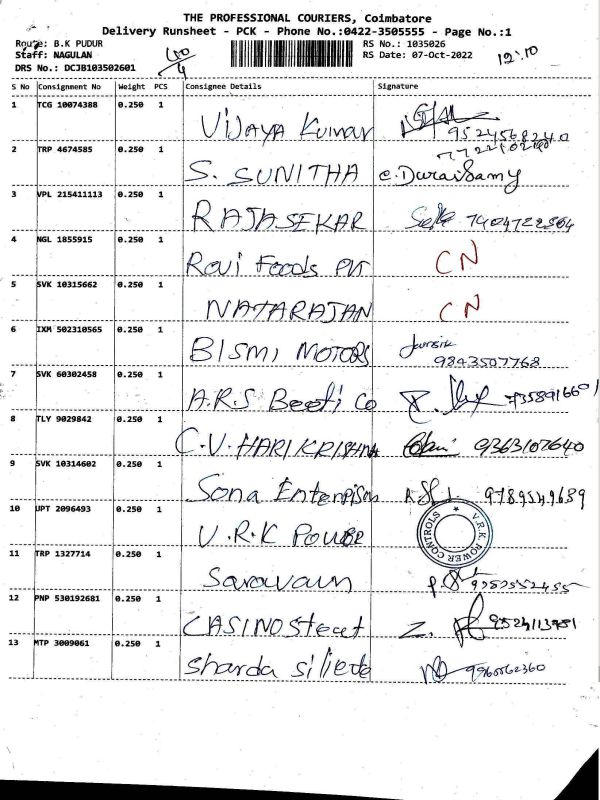 THE PROFESSIONAL COURIERS, Coimbatore
Delivery Runsheet - PCK - Phone No.:0422-3505555 - Page No.:1
Route: B.K PUDUR RS No.: 1035026
Staff: NAGULAN RS Date: 07-Oct-2022 12:10
DRS No.: DCJB103502601
S No Consignment No Weight PCS Consignee Details Signature
1 TCG 10074388 0.250 1 Vijaya Kumar 9524568240
2 TRP 4674585 0.250 1 S. SUNITHA C. Duraisamy
3 VPL 215411113 0.250 1 RAJASEKAR
4 NGL 1855915 0.250 1 Ravi Foods Pvt CN
5 SVK 10315662 0.250 1 NATARAJAN CN
6 IXM 502310565 0.250 1 BISMI MOTORS 9843507768
7 SVK 60302458 0.250 1 A.R.S Beeti Co
8 TLY 9029842 0.250 1 C.V. HARI KRISHNA 9363107640
9 SVK 10314602 0.250 1 Sona Enterprises 9789549689
10 UPT 2096493 0.250 1 V.R.K Power V.R.K. POWER CONTROLS
11 TRP 1327714 0.250 1
12 PNP 530192681 0.250 1 CASINO
13 MTP 3009061 0.250 1 Sharda